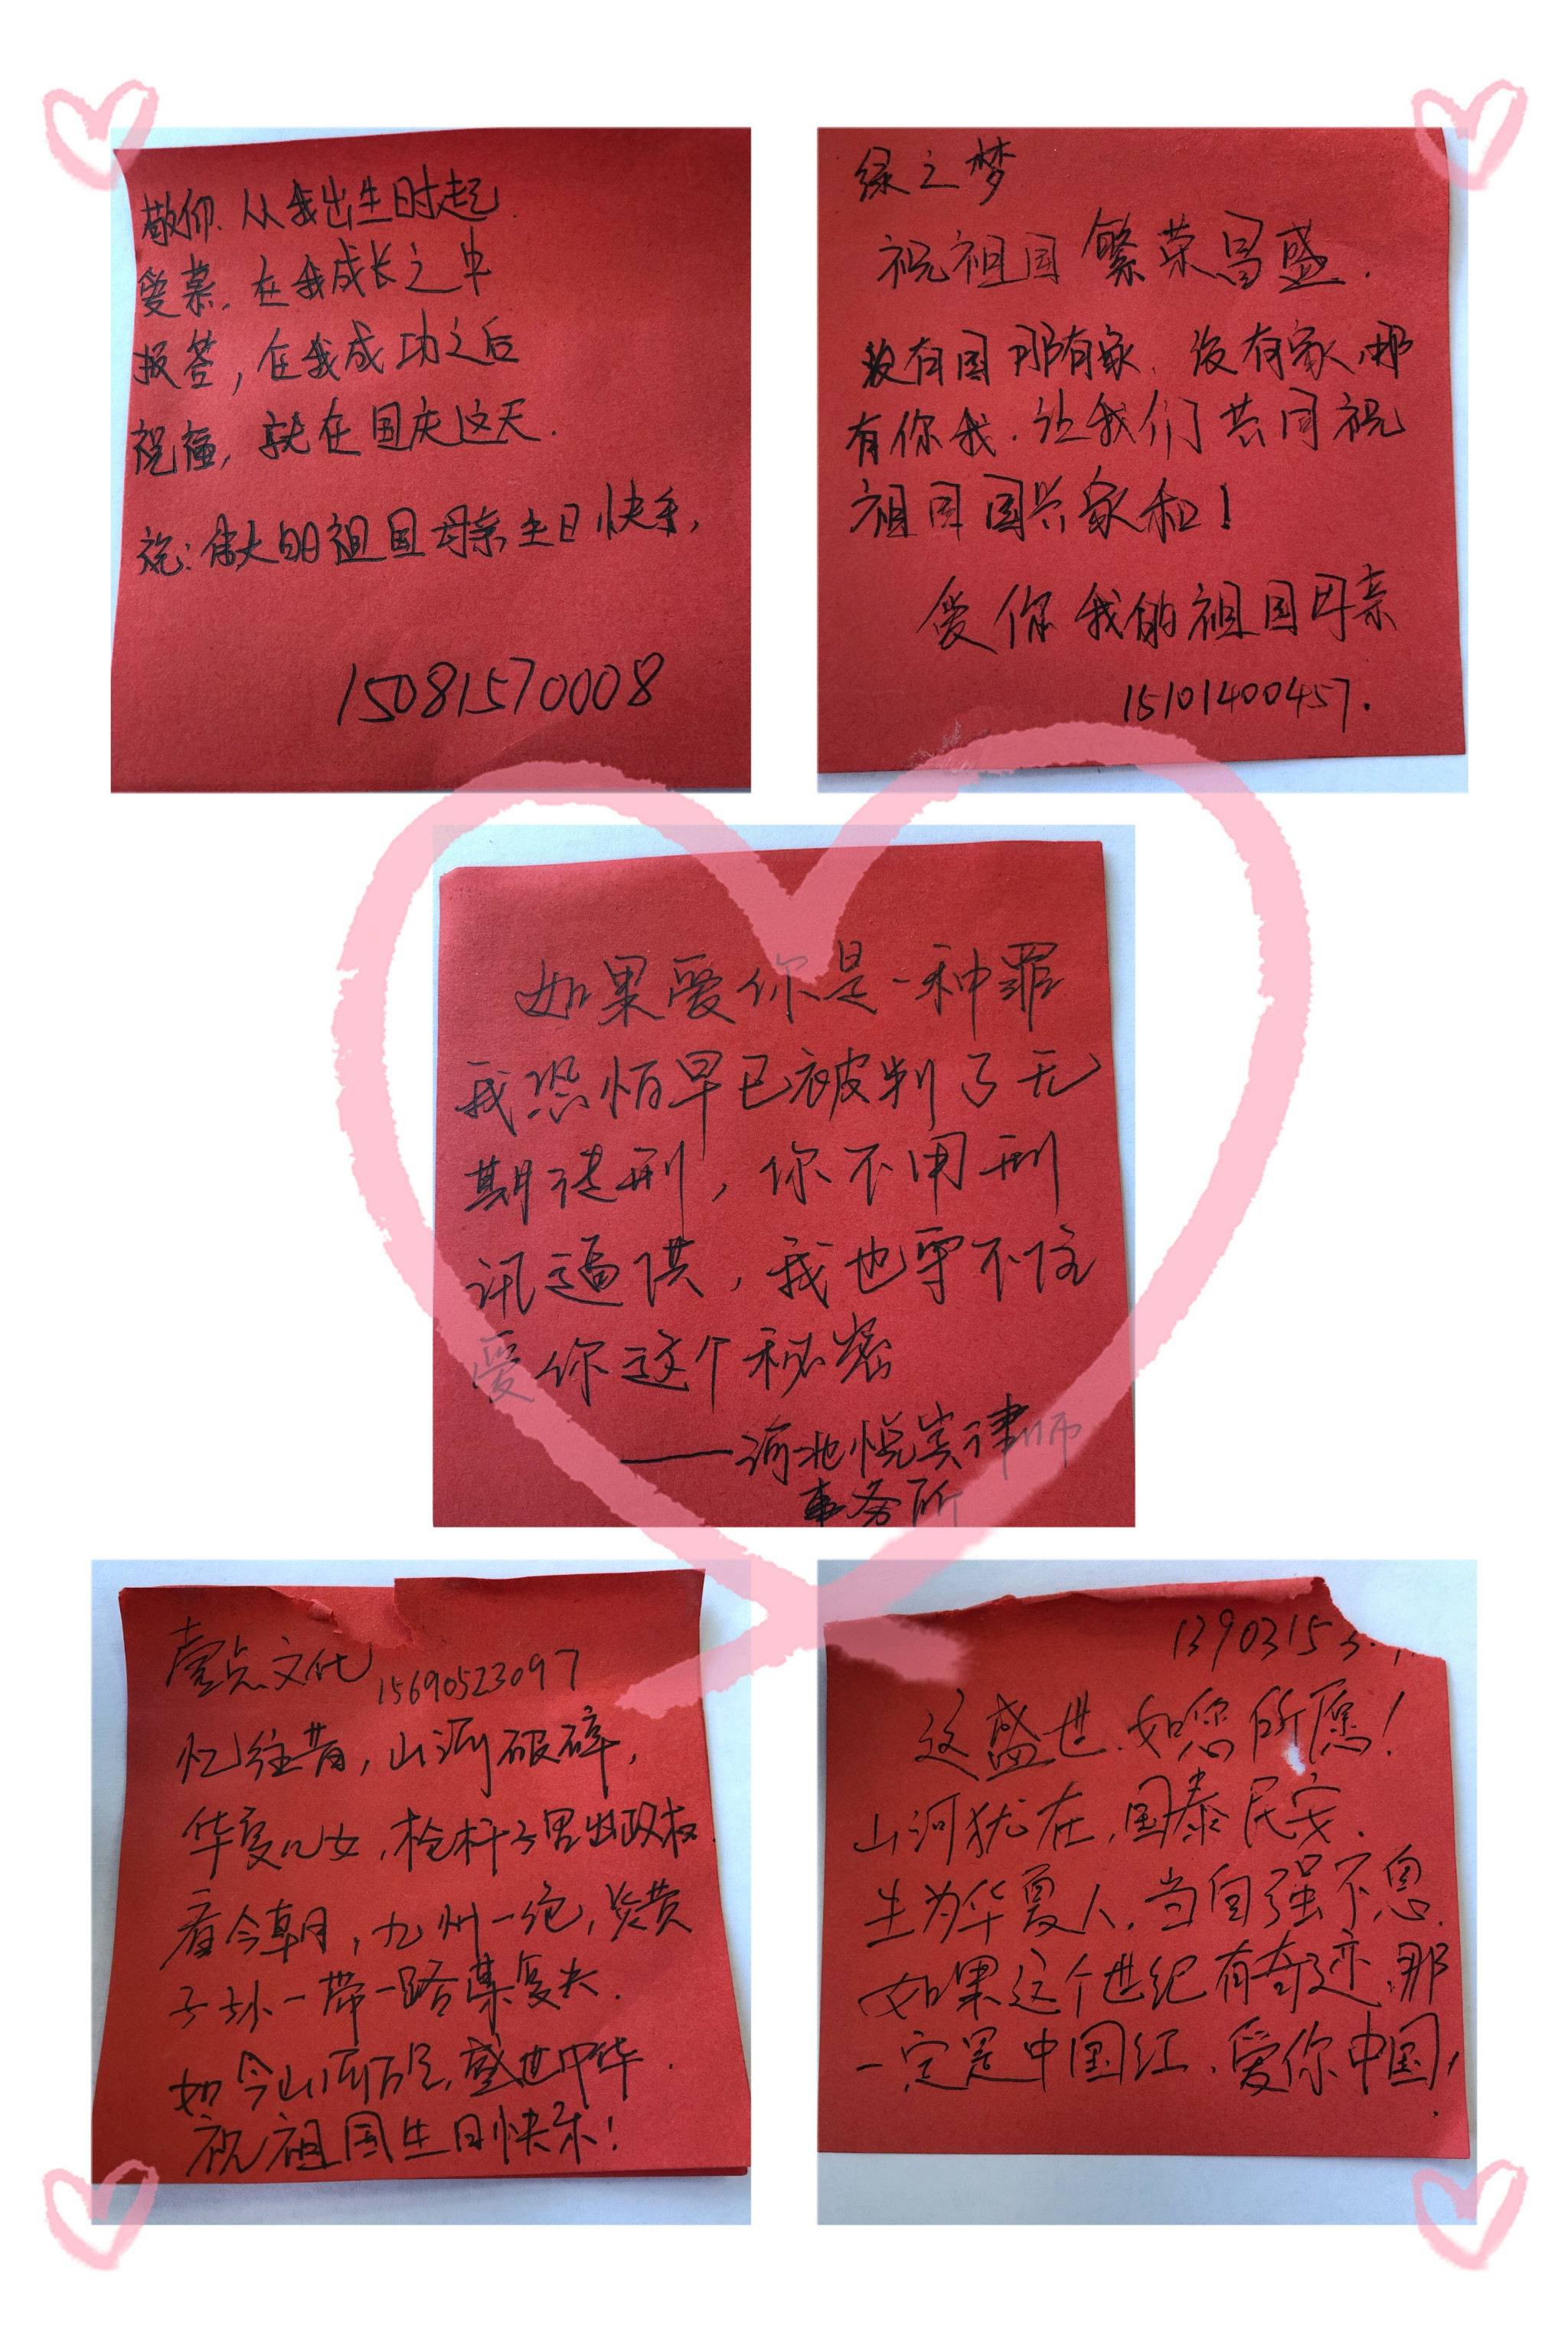 敬仰.从我出生时起.
爱慕.在我成长之中
报答,在我成功之后
祝福,就在国庆这天.
祝:伟大的祖国母亲生日快乐,
15081570008
绿之梦
祝祖国繁荣昌盛.
没有国那有家.没有家,那
有你我.让我们共同祝
祖国国兴家和!
爱你我的祖国母亲
15101400457.
如果爱你是一种罪
我恐怕早已被判了无
期徒刑,你不用刑
讯逼供,我也守不住
爱你这个秘密
——河北悦宾律师
事务所
壹点文化 15690523097
忆往昔,山河破碎,
华夏儿女,枪杆子里出政权.
看今朝,九州一统,炎黄
子孙一带一路谋复兴.
如今山河万里,盛世中华.
祝祖国生日快乐!
1390315
这盛世.如您所愿!
山河犹在,国泰民安.
生为华夏人.当自强不息.
如果这个世纪有奇迹.那
一定是中国红.爱你中国!